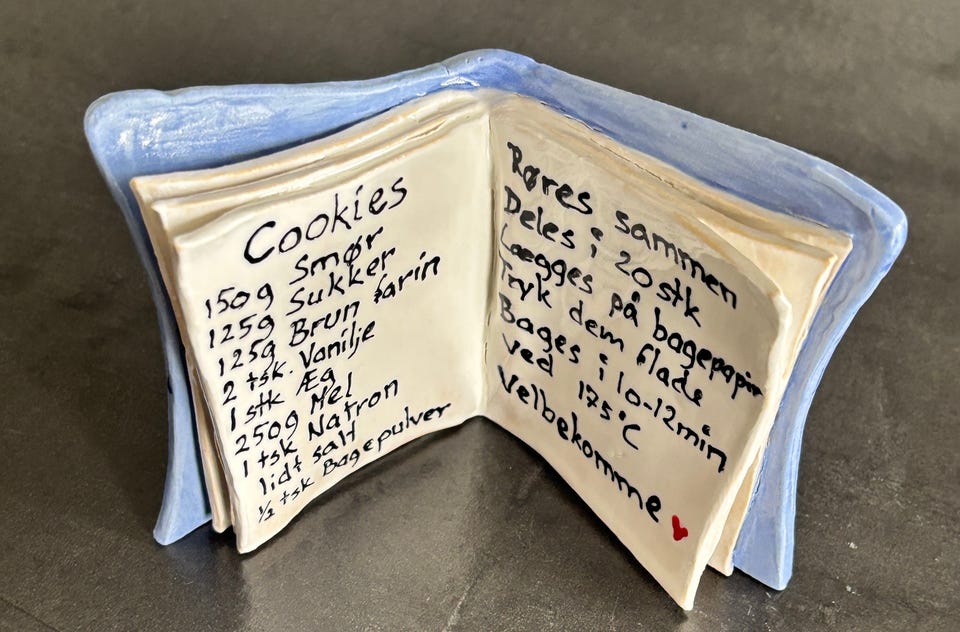 Cookies
150g Smør
125g Sukker
125g Brun farin
2 tsk. Vanilje
1 stk Æg
250g Mel
1 tsk Natron
lidt salt
1/2 tsk Bagepulver
Røres sammen
Deles i 20 stk
Lægges på bagepapir
Tryk dem flade
Bages i 10-12 min
ved 175°C
Velbekomme